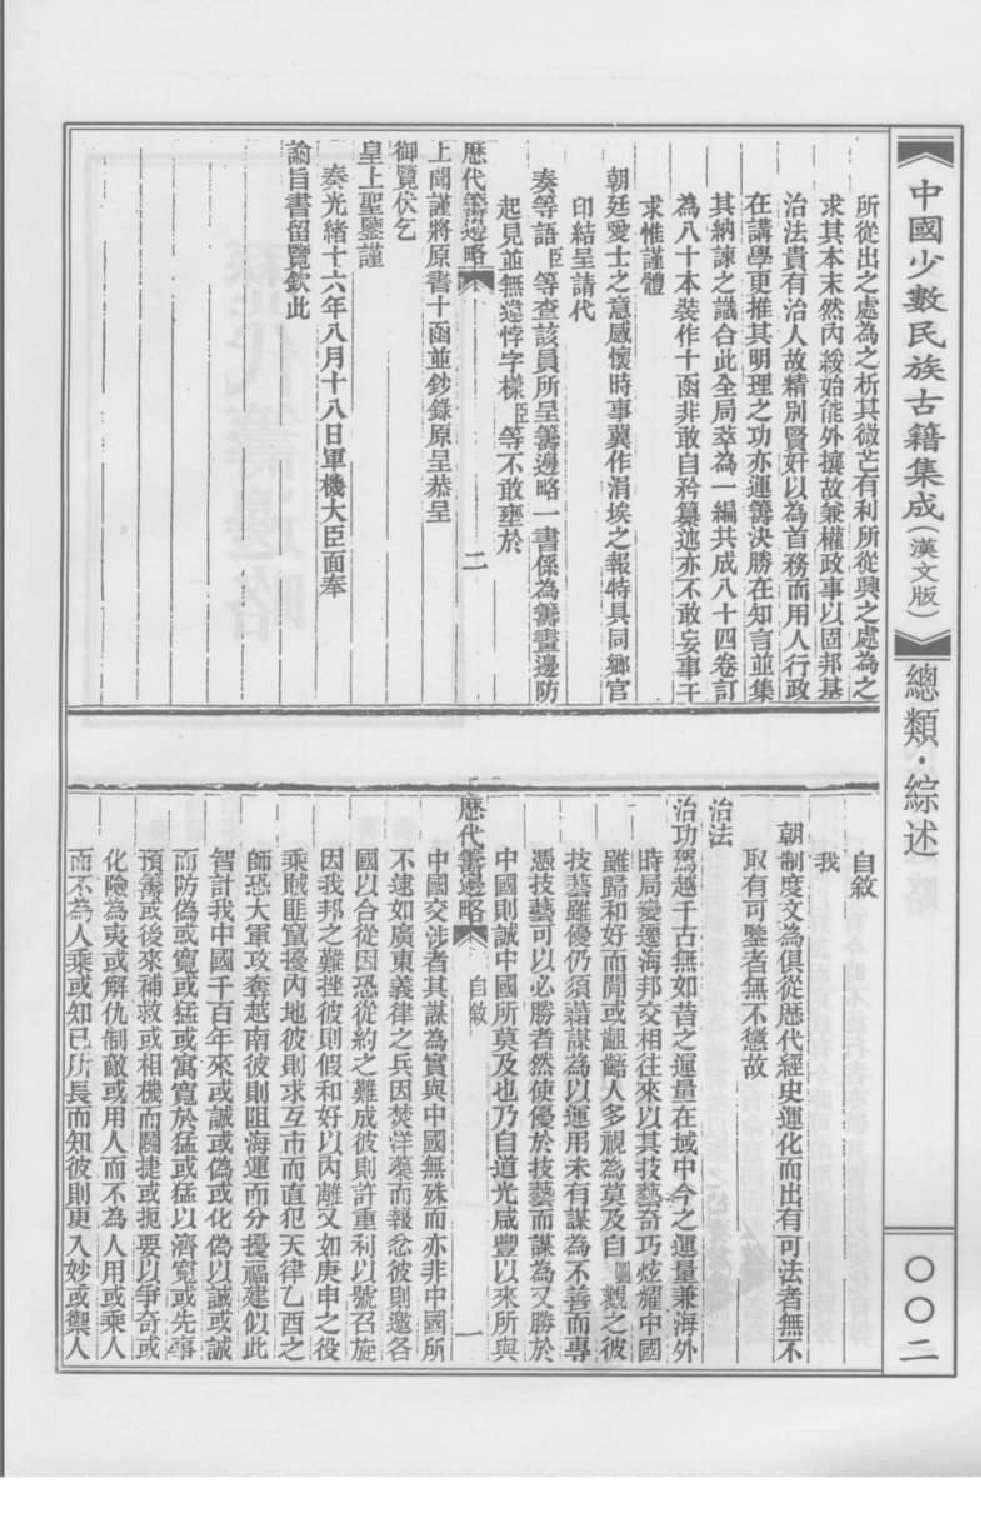 中國少數民族古籍集成（漢文版）
總類·綜述
〇〇二
所從出之處為之析其微芒有利所從興之處為之
求其本末然內綏始能外攘故兼權政事以固邦基
治法貴有治人故精別賢奸以為首務而用人行政
在講學更推其明理之功亦運籌決勝在知言並集
其納諫之識合此全局萃為一編共成八十四卷訂
為八十本裝作十函非敢自矜纂述亦不敢妄事干
求惟謹體
朝廷愛士之意感懷時事冀作涓埃之報特具同鄉官
印結呈請代
奏等語臣等查該員所呈籌邊略一書係為籌畫邊防
起見並無違悖字樣臣等不敢壅於
歷代籌邊略
二
上聞謹將原書十函並鈔錄原呈恭呈
御覽伏乞
皇上聖鑒謹
奏光緒十六年八月十八日軍機大臣面奉
諭旨書留覽欽此
自敘
我
朝制度文為俱從歷代經史運化而出有可法者無不
取有可鑒者無不懲故
治法
治功駕越千古無如昔之運量在域中今之運量兼海外
時局變遷海邦交相往來以其技藝奇巧炫耀中國
雖歸和好而間或齟齬人多視為莫及自觀之彼
技藝雖優仍須藉謀為以運用未有謀為不善而專
憑技藝可以必勝者然使優於技藝而謀為又勝於
中國則誠中國所莫及也乃自道光咸豐以來所與
歷代籌邊略
自敘
一
中國交涉者其謀為實與中國無殊而亦非中國所
不逮如廣東義律之兵因焚洋藥而報忿彼則邀各
國以合從因恐從約之難成彼則許重利以號召旋
因我邦之難挫彼則假和好以內離又如庚申之役
乘賊匪竄擾內地彼則求互市而直犯天津乙酉之
師恐大軍攻奪越南彼則阻海運而分擾福建似此
智計我中國千百年來或誠或偽或化偽以誠或誠
而防偽或寬或猛或寓寬於猛或猛以濟寬或先事
預籌或後來補救或相機而鬭捷或扼要以爭奇或
化險為夷或解仇制敵或用人而不為人用或乘人
而不為人乘或知已所長而知彼則更入妙或禦人